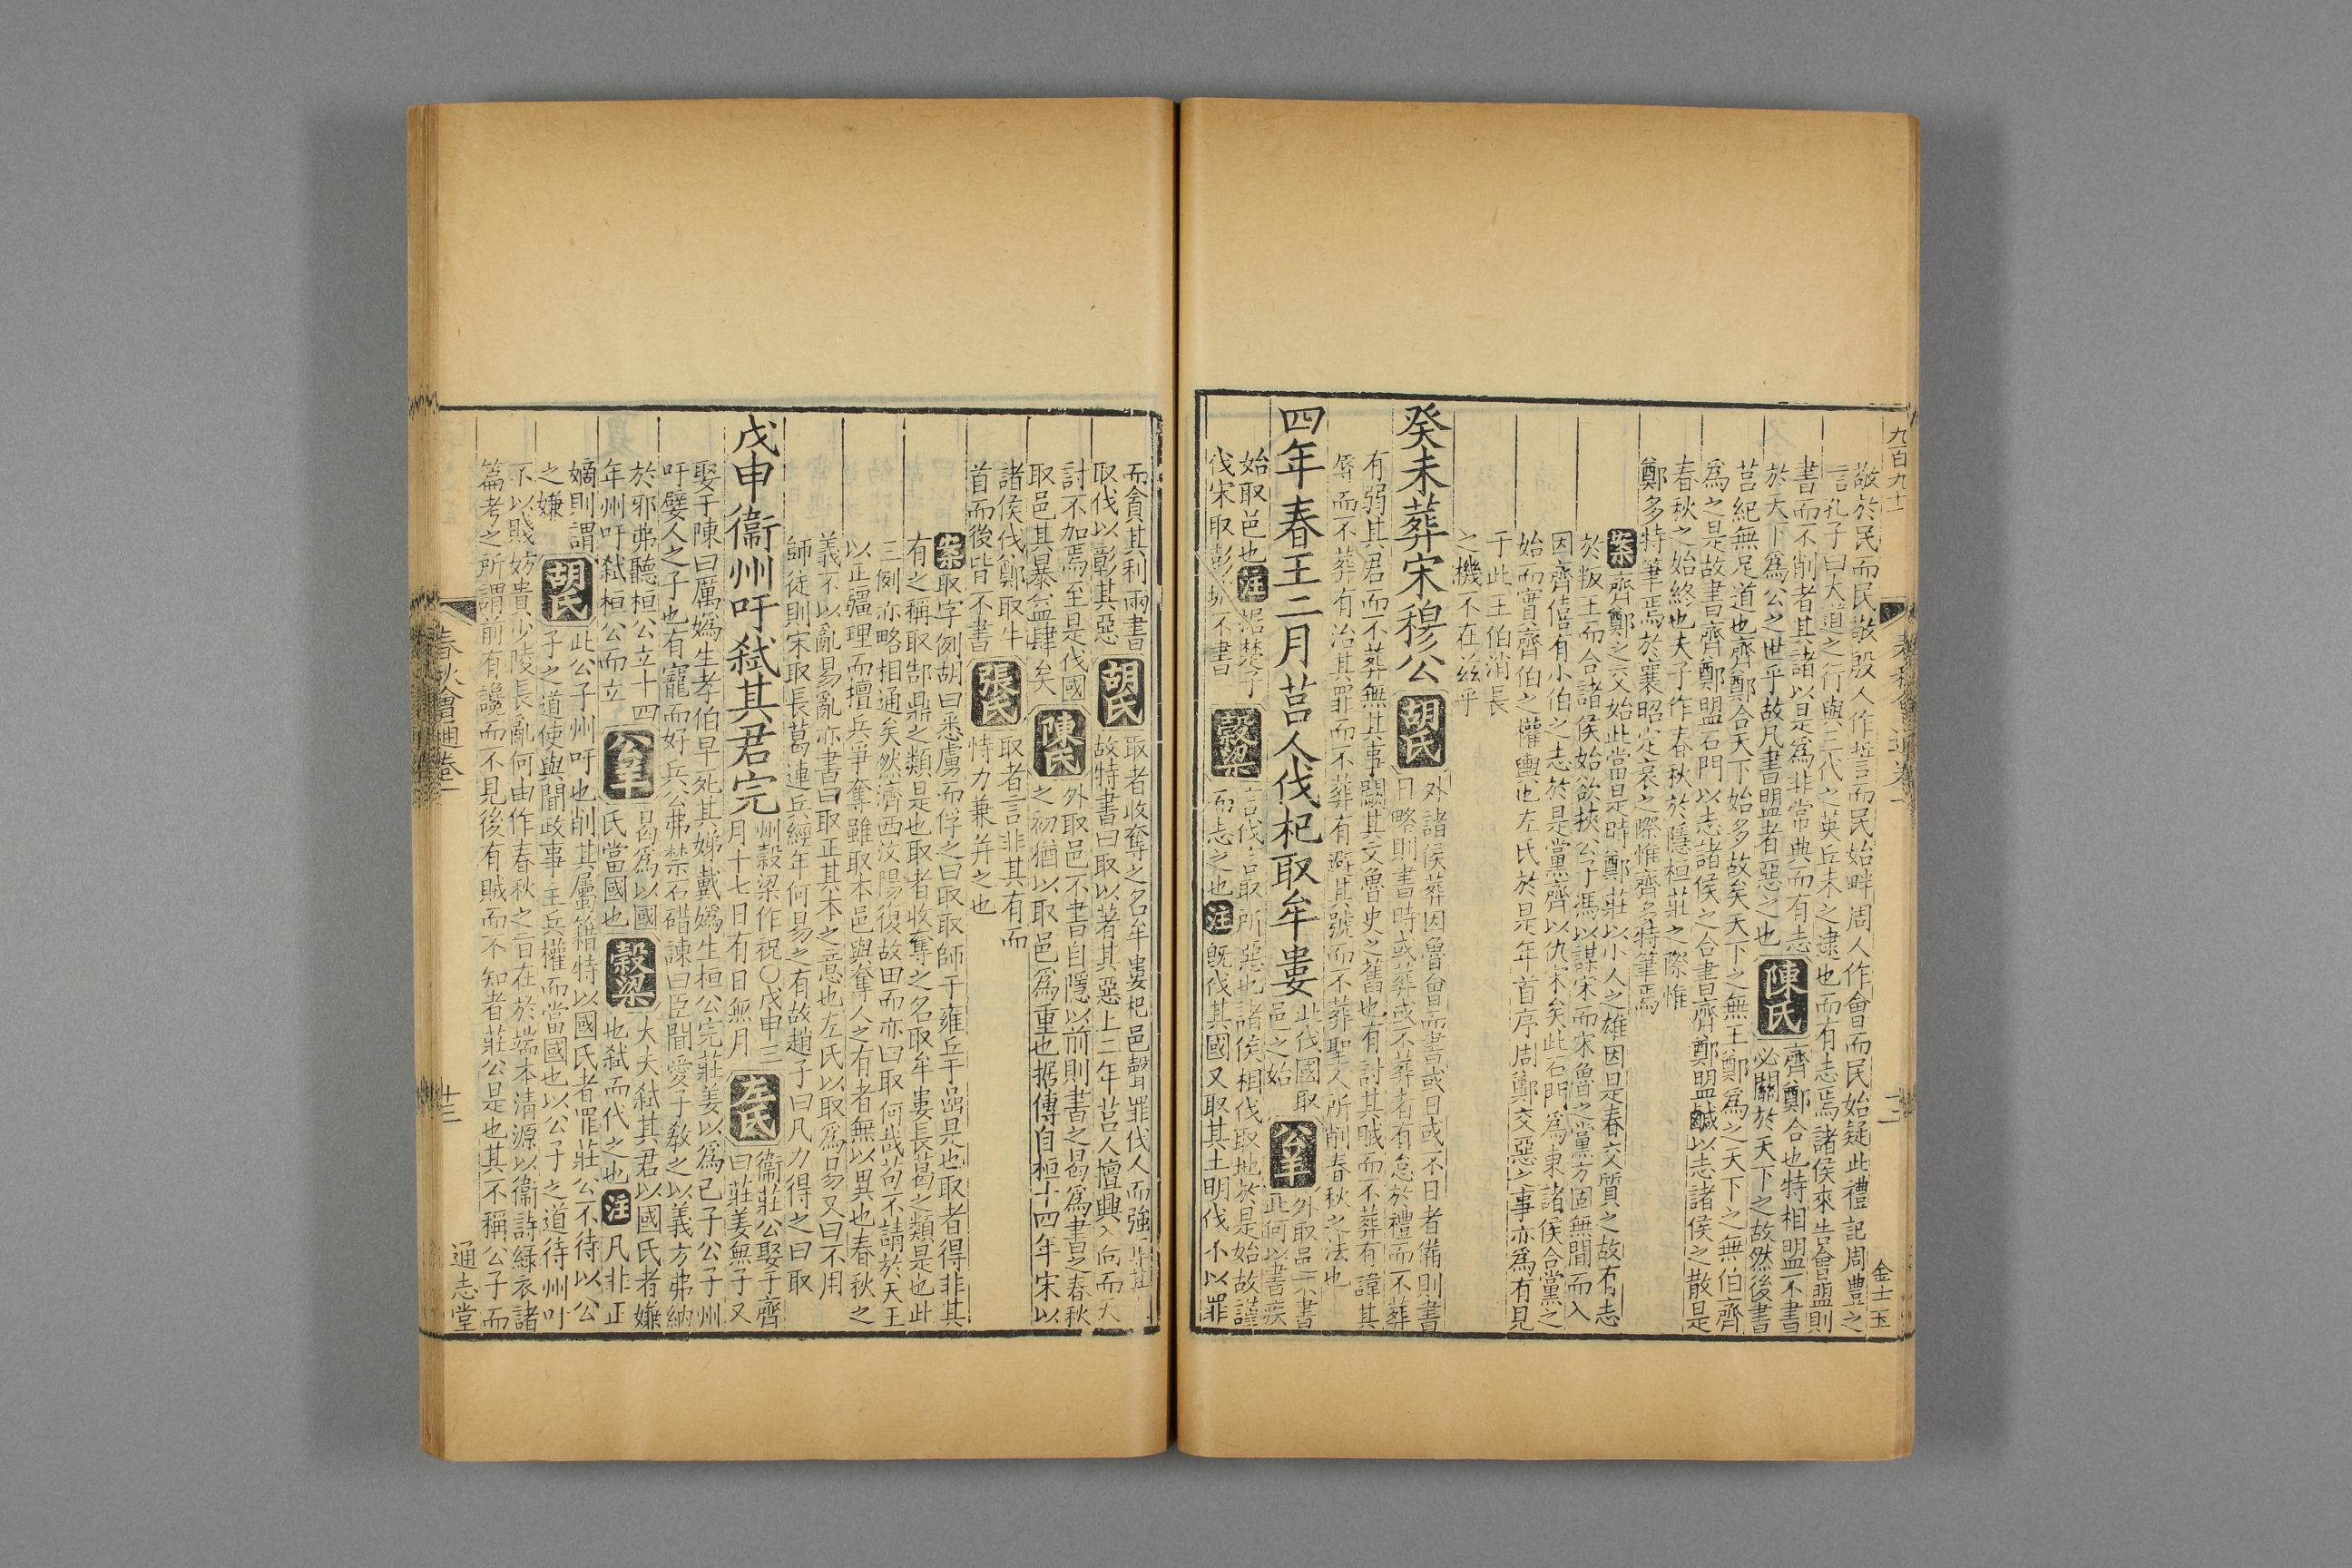 九百九十一
春秋會通卷一
十二
金士玉
敬於民而民敬殷人作誓言而民始畔周人作會而民始疑此禮記周豊之
言孔子曰大道之行與三代之英丘未之逮也而有志焉諸侯來告會盟則
書而不削者其諸以是爲非常典而有志
於天下爲公之世乎故凡書盟者惡之也
陳氏
齊鄭合也特相盟不書
必關於天下之故然後書
莒紀無足道也齊鄭合天下始多故矣天下之無王鄭爲之天下之無伯齊
爲之是故書齊鄭盟石門以志諸侯之合書齊鄭盟鹹以志諸侯之散是
春秋之始終也夫子作春秋於隱桓莊之際惟
鄭多特筆焉於襄昭定哀之際惟齊多特筆焉
案
齊鄭之交始此當是時鄭莊以小人之雄因是春交質之故有志
於叛王而合諸侯始欲挾公子馮以謀宋而宋魯之黨方固無間而入
因齊僖有小伯之志於是黨齊以仇宋矣此石門爲東諸侯合黨之
始而實齊伯之權輿也左氏於是年首序周鄭交惡之事亦爲有見
于此王伯消長
之機不在兹乎
癸未葬宋穆公
胡氏
外諸侯葬因魯會而書或日或不日者備則書
日略則書時或葬或不葬者有怠於禮而不葬
有弱其君而不葬無其事闕其文魯史之舊也有討其賊而不葬有諱其
辱而不葬有治其罪而不葬有避其號而不葬聖人所削春秋之法也
四年春王二月莒人伐杞取牟婁
此伐國取
邑之始
公羊
外取邑不書
此何以書疾
始取邑也
注
据楚子
伐宋取彭城不書
穀梁
言伐言取所惡也諸侯相伐取地於是始故謹
而志之也
注
既伐其國又取其土明伐不以罪
而貪其利兩書
取伐以彰其惡
胡氏
取者收奪之名牟婁杞邑聲罪伐人而強
故特書曰取以著其惡上二年莒人擅興入向而天
討不加焉至是伐國
取邑其暴益肆矣
陳氏
外取邑不書自隱以前則書之曷爲書之春秋
之初猶以取邑爲重也据傳自桓十四年宋以
諸侯伐鄭取牛
首而後皆不書
張氏
取者言非其有而
恃力兼并之也
案
取字例胡曰悉虜而俘之曰取取師于雍丘于嵒是也取者得非其
有之稱取郜鼎之類是也取者收奪之名取牟婁長葛之類是也此
三例亦略相通矣然濟西汶陽復故田而亦曰取何哉苟不請於天王
以正疆理而擅兵爭奪雖取本邑與奪人之有者無以異也春秋之
義不以亂易亂亦書曰取正其本之意也左氏以取爲易又曰不用
師徒則宋取長葛連兵經年何易之有故趙子曰凡力得之曰取
戊申衞州吁弒其君完
州穀梁作祝○戊申三
月十七日有日無月
左氏
衞莊公娶于齊
曰莊姜無子又
娶于陳曰厲嬀生孝伯早死其娣戴嬀生桓公完莊姜以爲己子公子州
吁嬖人之子也有寵而好兵公弗禁石碏諫曰臣聞愛子教之以義方弗納
於邪弗聽桓公立十四
年州吁弒桓公而立
公羊
曷爲以國
氏當國也
穀梁
大夫弒其君以國氏者嫌
也弒而代之也
注
凡非正
嫡則謂
之嫌
胡氏
此公子州吁也削其屬籍特以國氏者罪莊公不待以公
子之道使與聞政事主兵權而當國也以公子之道待州吁
不以賤妨貴少陵長亂何由作春秋之旨在於端本清源以衞詩綠衣諸
篇考之所謂前有讒而不見後有賊而不知者莊公是也其不稱公子而
春秋會通卷一
十二
通志堂